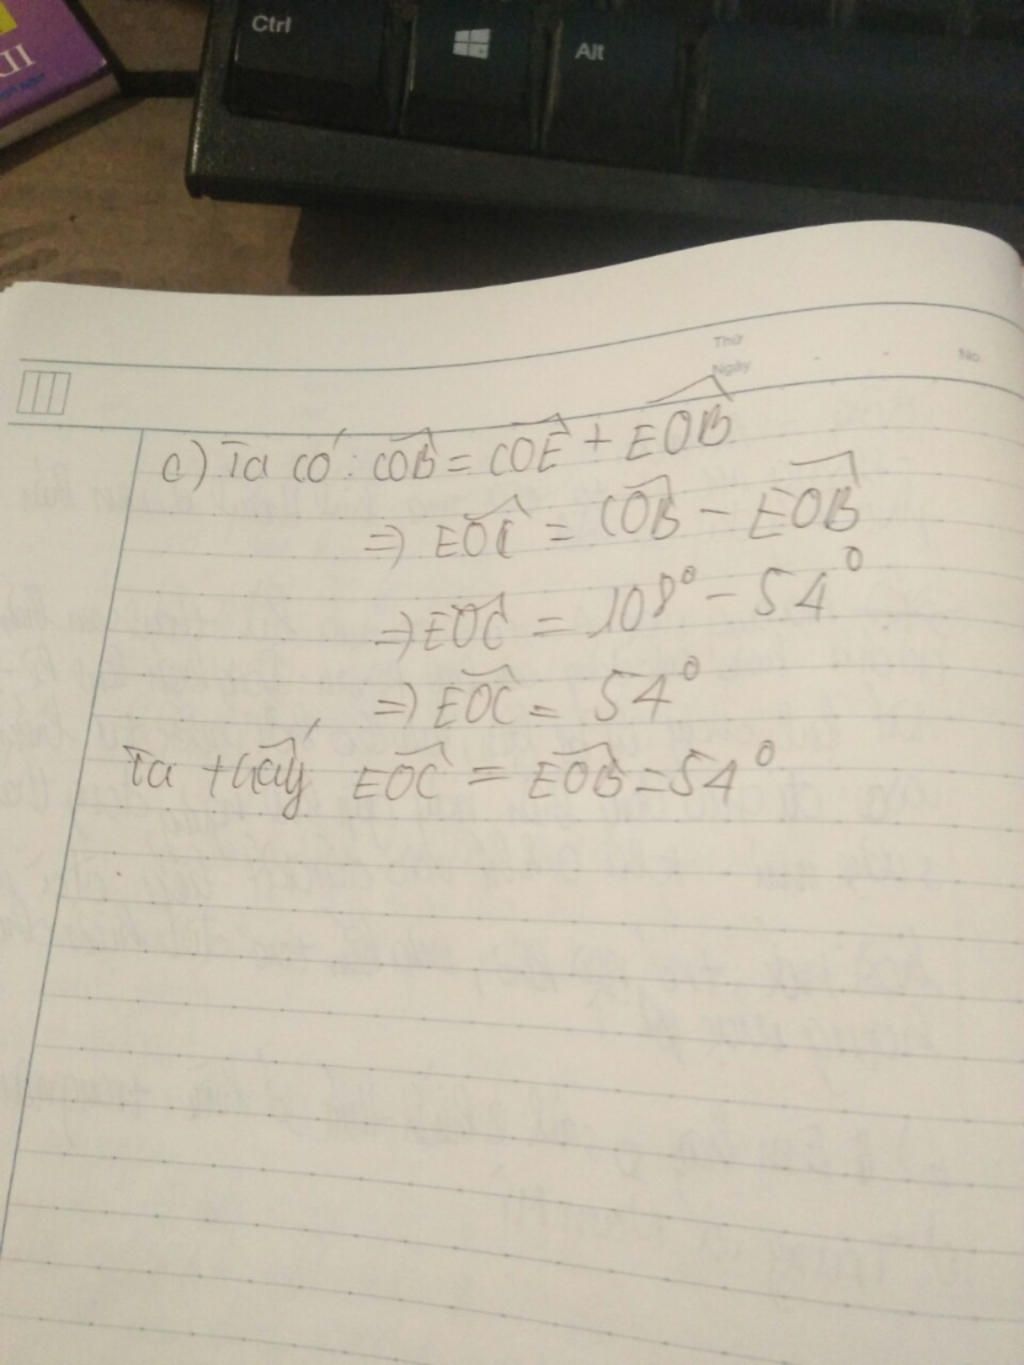 Ctrl
Alt
Thứ
Ngày
No.
c) Ta có: COB = COE + EOB
=> EOC = COB - EOB
=> EOC = 108° - 54°
=> EOC = 54°
Ta thấy EOC = EOB = 54°